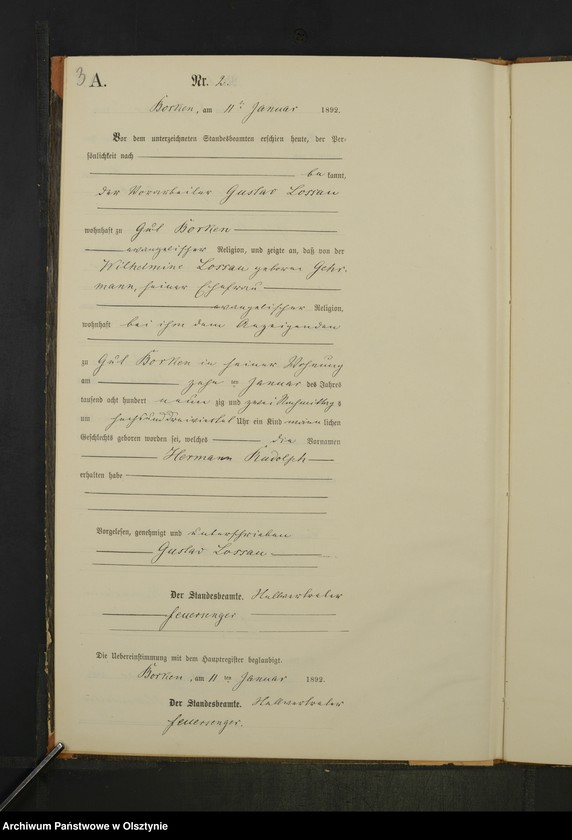 3 A. Nr. 2
Borken, am 11ten Januar 1892.
Vor dem unterzeichneten Standesbeamten erschien heute, der Per-
sönlichkeit nach
bekannt,
der Vorarbeiter Gustav Lossau
wohnhaft zu Gut Borken
evangelischer Religion, und zeigte an, daß von der
Wilhelmine Lossau geborene Gehr-
mann, seiner Ehefrau
evangelischer Religion,
wohnhaft bei ihm dem Anzeigenden
zu Gut Borken in seiner Wohnung
am zehnten Januar des Jahres
tausend acht hundert neunzig und zwei Nachmittags
um sechs und dreiviertel Uhr ein Kind männlichen
Geschlechts geboren worden sei, welches die Vornamen
Hermann Rudolph
erhalten habe
Vorgelesen, genehmigt und unterschrieben
Gustav Lossau
Der Standesbeamte.
Die Uebereinstimmung mit dem Hauptregister beglaubigt.
Borken, am 11ten Januar 1892.
Der Standesbeamte.
Archiwum Państwowe w Olsztynie